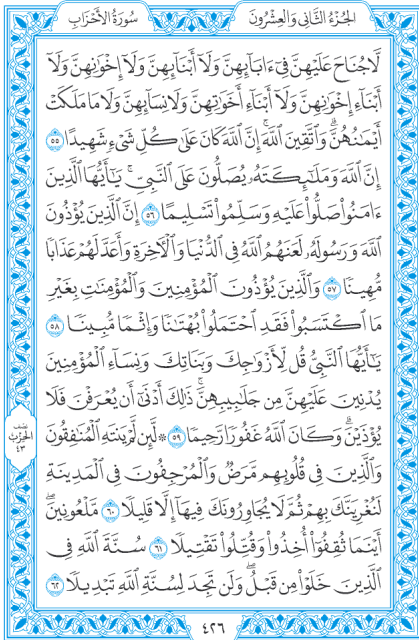 الجُزْءُ الثَّانِي وَالعِشْرُونَ
سُورَةُ الأَحْزَابِ
لَّا جُنَاحَ عَلَيْهِنَّ فِىٓ ءَابَآئِهِنَّ وَلَآ أَبْنَآئِهِنَّ وَلَآ إِخْوَٰنِهِنَّ وَلَآ
أَبْنَآءِ إِخْوَٰنِهِنَّ وَلَآ أَبْنَآءِ أَخَوَٰتِهِنَّ وَلَا نِسَآئِهِنَّ وَلَا مَا مَلَكَتْ
أَيْمَٰنُهُنَّۗ وَٱتَّقِينَ ٱللَّهَۚ إِنَّ ٱللَّهَ كَانَ عَلَىٰ كُلِّ شَىْءٍ شَهِيدًا ٥٥
إِنَّ ٱللَّهَ وَمَلَٰٓئِكَتَهُۥ يُصَلُّونَ عَلَى ٱلنَّبِىِّۚ يَٰٓأَيُّهَا ٱلَّذِينَ
ءَامَنُوا۟ صَلُّوا۟ عَلَيْهِ وَسَلِّمُوا۟ تَسْلِيمًا ٥٦ إِنَّ ٱلَّذِينَ يُؤْذُونَ
ٱللَّهَ وَرَسُولَهُۥ لَعَنَهُمُ ٱللَّهُ فِى ٱلدُّنْيَا وَٱلْءَاخِرَةِ وَأَعَدَّ لَهُمْ عَذَابًا
مُّهِينًا ٥٧ وَٱلَّذِينَ يُؤْذُونَ ٱلْمُؤْمِنِينَ وَٱلْمُؤْمِنَٰتِ بِغَيْرِ
مَا ٱكْتَسَبُوا۟ فَقَدِ ٱحْتَمَلُوا۟ بُهْتَٰنًا وَإِثْمًا مُّبِينًا ٥٨
يَٰٓأَيُّهَا ٱلنَّبِىُّ قُل لِّأَزْوَٰجِكَ وَبَنَاتِكَ وَنِسَآءِ ٱلْمُؤْمِنِينَ
يُدْنِينَ عَلَيْهِنَّ مِن جَلَٰبِيبِهِنَّۚ ذَٰلِكَ أَدْنَىٰٓ أَن يُعْرَفْنَ فَلَا
يُؤْذَيْنَۗ وَكَانَ ٱللَّهُ غَفُورًا رَّحِيمًا ٥٩ ۞ لَّئِن لَّمْ يَنتَهِ ٱلْمُنَٰفِقُونَ
وَٱلَّذِينَ فِى قُلُوبِهِم مَّرَضٌ وَٱلْمُرْجِفُونَ فِى ٱلْمَدِينَةِ
لَنُغْرِيَنَّكَ بِهِمْ ثُمَّ لَا يُجَاوِرُونَكَ فِيهَآ إِلَّا قَلِيلًا ٦٠ مَّلْعُونِينَۖ
أَيْنَمَا ثُقِفُوٓا۟ أُخِذُوا۟ وَقُتِّلُوا۟ تَقْتِيلًا ٦١ سُنَّةَ ٱللَّهِ فِى
ٱلَّذِينَ خَلَوْا۟ مِن قَبْلُۖ وَلَن تَجِدَ لِسُنَّةِ ٱللَّهِ تَبْدِيلًا ٦٢
نصف
الحزب
٤٣
٤٢٦